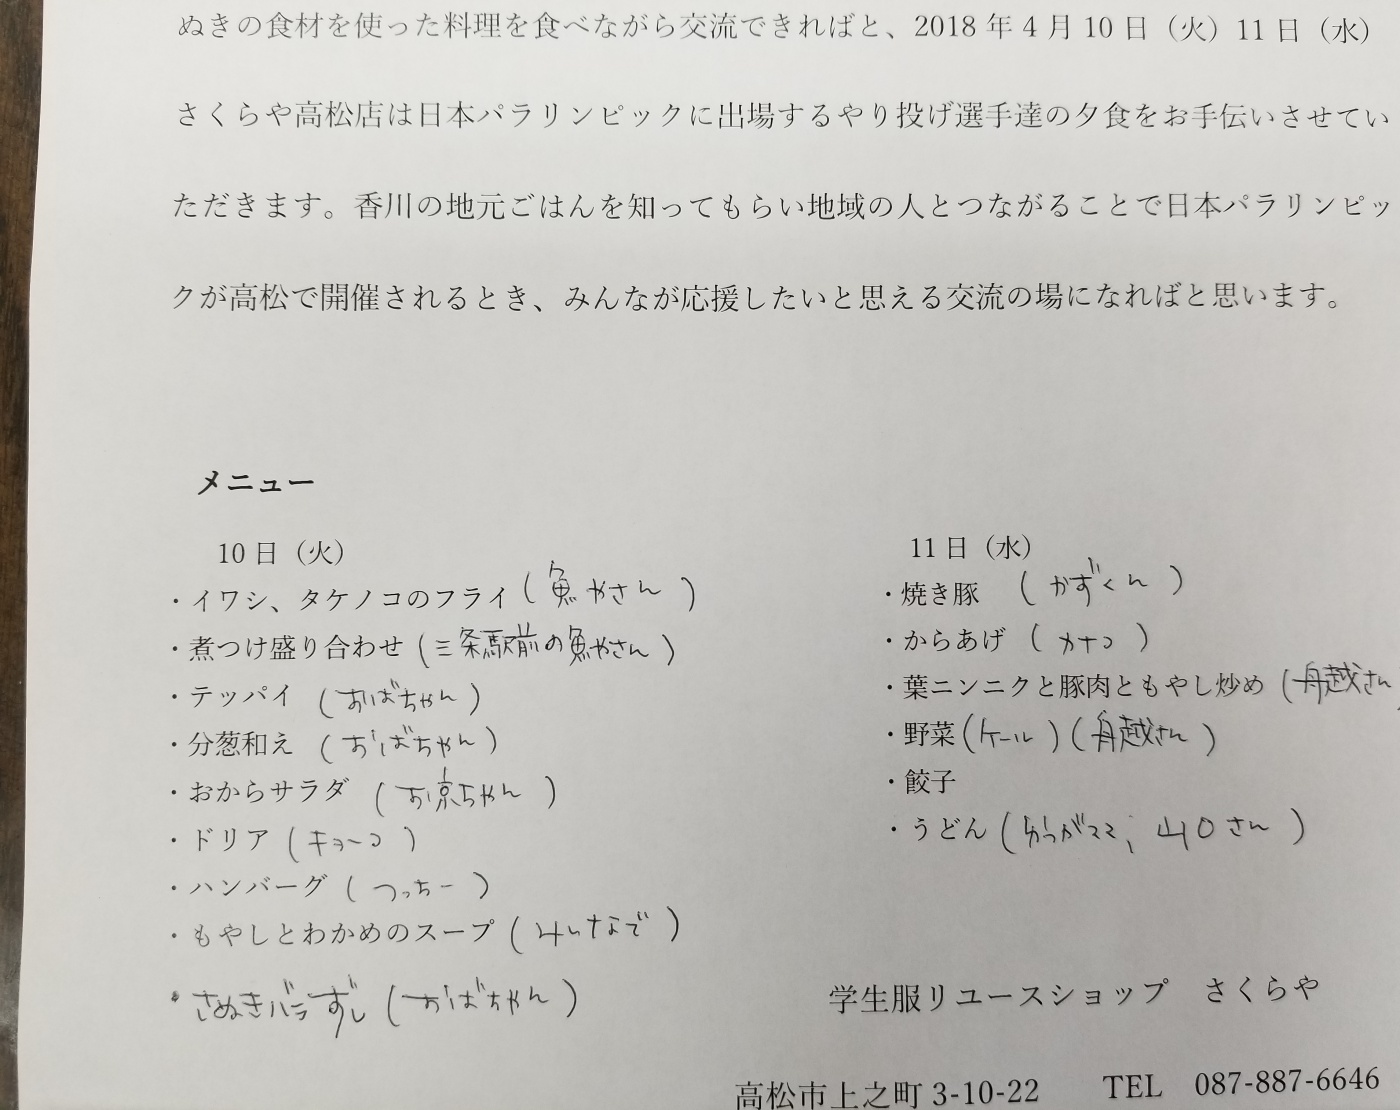 ぬきの食材を使った料理を食べながら交流できればと、2018 年 4 月 10 日（火）11 日（水）
さくらや高松店は日本パラリンピックに出場するやり投げ選手達の夕食をお手伝いさせてい
ただきます。香川の地元ごはんを知ってもらい地域の人とつながることで日本パラリンピッ
クが高松で開催されるとき、みんなが応援したいと思える交流の場になればと思います。
メニュー
10 日（火）
・イワシ、タケノコのフライ（魚やさん）
・煮つけ盛り合わせ（三条駅前の魚やさん）
・テッパイ（おばちゃん）
・分葱和え（おばちゃん）
・おからサラダ（お京ちゃん）
・ドリア（キョーコ）
・ハンバーグ（つっちー）
・もやしとわかめのスープ（みんなで）
・さぬきバラずし（おばちゃん）
11 日（水）
・焼き豚（かずくん）
・からあげ（カナコ）
・葉ニンニクと豚肉ともやし炒め（舟越さん）
・野菜（ケール）（舟越さん）
・餃子
・うどん（ママ、山口さん）
学生服リユースショップ　さくらや
高松市上之町 3-10-22　TEL　087-887-6646